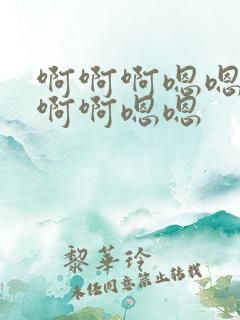 啊啊啊嗯嗯
啊啊嗯嗯
黎華玲
未经同意禁止转载